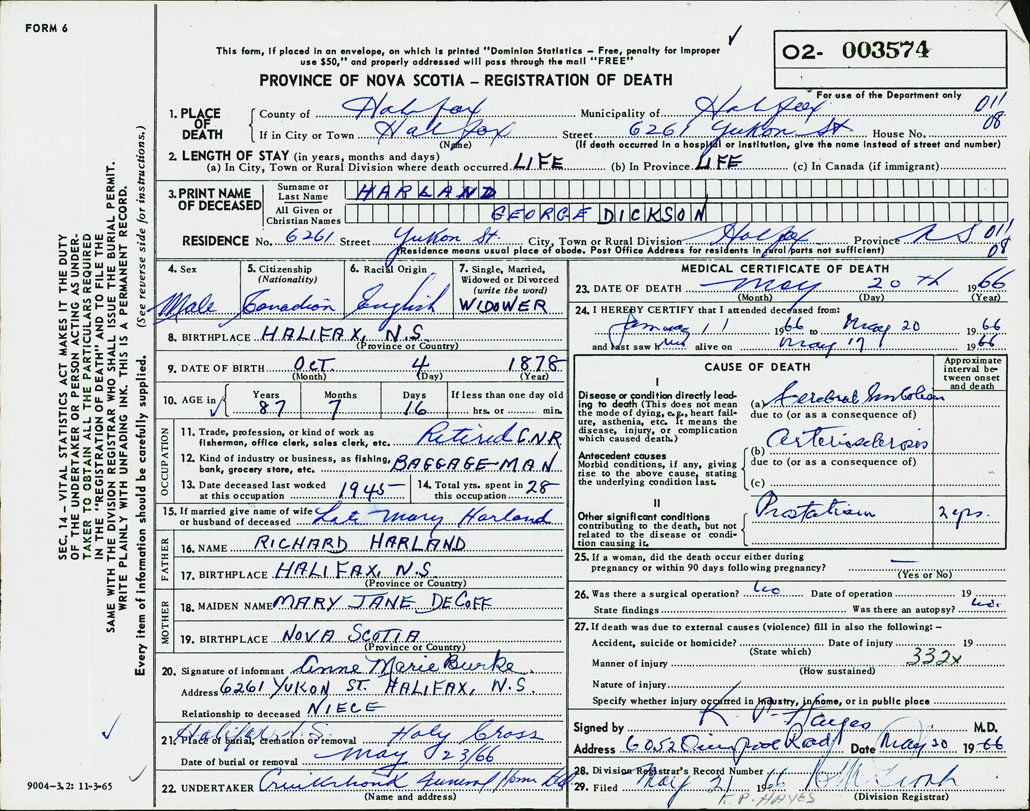 FORM 6
This form, if placed in an envelope, on which is printed "Dominion Statistics – Free, penalty for improper
use $50," and properly addressed will pass through the mail "FREE"
O2- 003574
PROVINCE OF NOVA SCOTIA – REGISTRATION OF DEATH
For use of the Department only
1. PLACE OF DEATH
County of Halifax Municipality of Halifax 011
If in City or Town Halifax Street 6261 Yukon St House No. 08
(Name) (If death occurred in a hospital or institution, give the name instead of street and number)
2. LENGTH OF STAY (in years, months and days)
(a) In City, Town or Rural Division where death occurred LIFE (b) In Province LIFE (c) In Canada (if immigrant)
3. PRINT NAME OF DECEASED
Surname or Last Name HARLAND
All Given or Christian Names GEORGE DICKSON
RESIDENCE No. 6261 Street Yukon St City, Town or Rural Division Halifax Province N S 011
(Residence means usual place of abode. Post Office Address for residents in rural parts not sufficient) 08
4. Sex Male
5. Citizenship (Nationality) Canadian
6. Racial Origin English
7. Single, Married, Widowed or Divorced (write the word) WIDOWER
8. BIRTHPLACE HALIFAX, N.S.
(Province or Country)
9. DATE OF BIRTH OCT. 4 1878
(Month) (Day) (Year)
10. AGE in Years 87 Months 7 Days 16 If less than one day old hrs. or min.
OCCUPATION
11. Trade, profession, or kind of work as
fisherman, office clerk, sales clerk, etc. Retired C.N.R
12. Kind of industry or business, as fishing,
bank, grocery store, etc. BAGGAGE-MAN
13. Date deceased last worked at this occupation 1945
14. Total yrs. spent in this occupation 28
15. If married give name of wife
or husband of deceased Late Mary Harland
FATHER
16. NAME RICHARD HARLAND
17. BIRTHPLACE HALIFAX, N.S.
(Province or Country)
MOTHER
18. MAIDEN NAME MARY JANE DECOFF
19. BIRTHPLACE NOVA SCOTIA
(Province or Country)
20. Signature of informant Anne Marie Burke
Address 6261 YUKON ST. HALIFAX, N.S.
Relationship to deceased NIECE
21. Place of burial, cremation or removal Halifax N.S. Holy Cross
Date of burial or removal May 23/66
22. UNDERTAKER Cruikshank Funeral Home Ltd
(Name and address)
MEDICAL CERTIFICATE OF DEATH
23. DATE OF DEATH May 20th 1966
(Month) (Day) (Year)
24. I HEREBY CERTIFY that I attended deceased from:
January 11 1966 to May 20 1966
and last saw him alive on May 19 1966
CAUSE OF DEATH
Approximate interval between onset and death
I
Disease or condition directly leading to death (This does not mean
the mode of dying, e.g., heart failure, asthenia, etc. It means the
disease, injury, or complication which caused death.)
(a) Cerebral Embolism
due to (or as a consequence of)
Antecedent causes
Morbid conditions, if any, giving rise to the above cause, stating
the underlying condition last.
(b) Arteriosclerosis
due to (or as a consequence of)
(c)
II
Other significant conditions
contributing to the death, but not related to the disease or condition causing it.
Prostatism 2 yrs.
25. If a woman, did the death occur either during
pregnancy or within 90 days following pregnancy? —
(Yes or No)
26. Was there a surgical operation? No Date of operation 19
State findings Was there an autopsy? No.
27. If death was due to external causes (violence) fill in also the following: –
Accident, suicide or homicide? Date of injury 19
(State which)
Manner of injury 332x
(How sustained)
Nature of injury
Specify whether injury occurred in industry, in home, or in public place
Signed by K. P. Hayes M.D.
Address 6052 Road Date May 20 1966
28. Division Registrar's Record Number
29. Filed May 21 1966
(Division Registrar)
K.P. HAYES
SEC. 14 – VITAL STATISTICS ACT MAKES IT THE DUTY
OF THE UNDERTAKER OR PERSON ACTING AS UNDER-
TAKER TO OBTAIN ALL THE PARTICULARS REQUIRED
IN THE "REGISTRATION OF DEATH" AND TO FILE THE
SAME WITH THE DIVISION REGISTRAR WHO SHALL ISSUE THE BURIAL PERMIT.
WRITE PLAINLY WITH UNFADING INK. THIS IS A PERMANENT RECORD.
Every item of information should be carefully supplied. (See reverse side for instructions.)
9004-3,2: 11-3-65